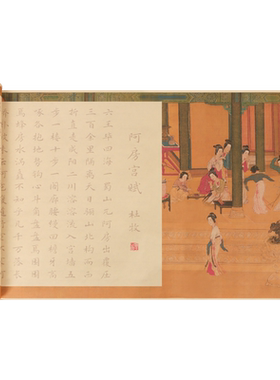 阿房宫赋
杜牧
六王毕四海一蜀山兀阿房出覆压
三百余里隔离天日骊山北构而西
折直走咸阳二川溶溶流入宫墙五
步一楼十步一阁廊腰缦回檐牙高
啄各抱地势钩心斗角盘盘焉囷囷
焉蜂房水涡矗不知乎几千万落